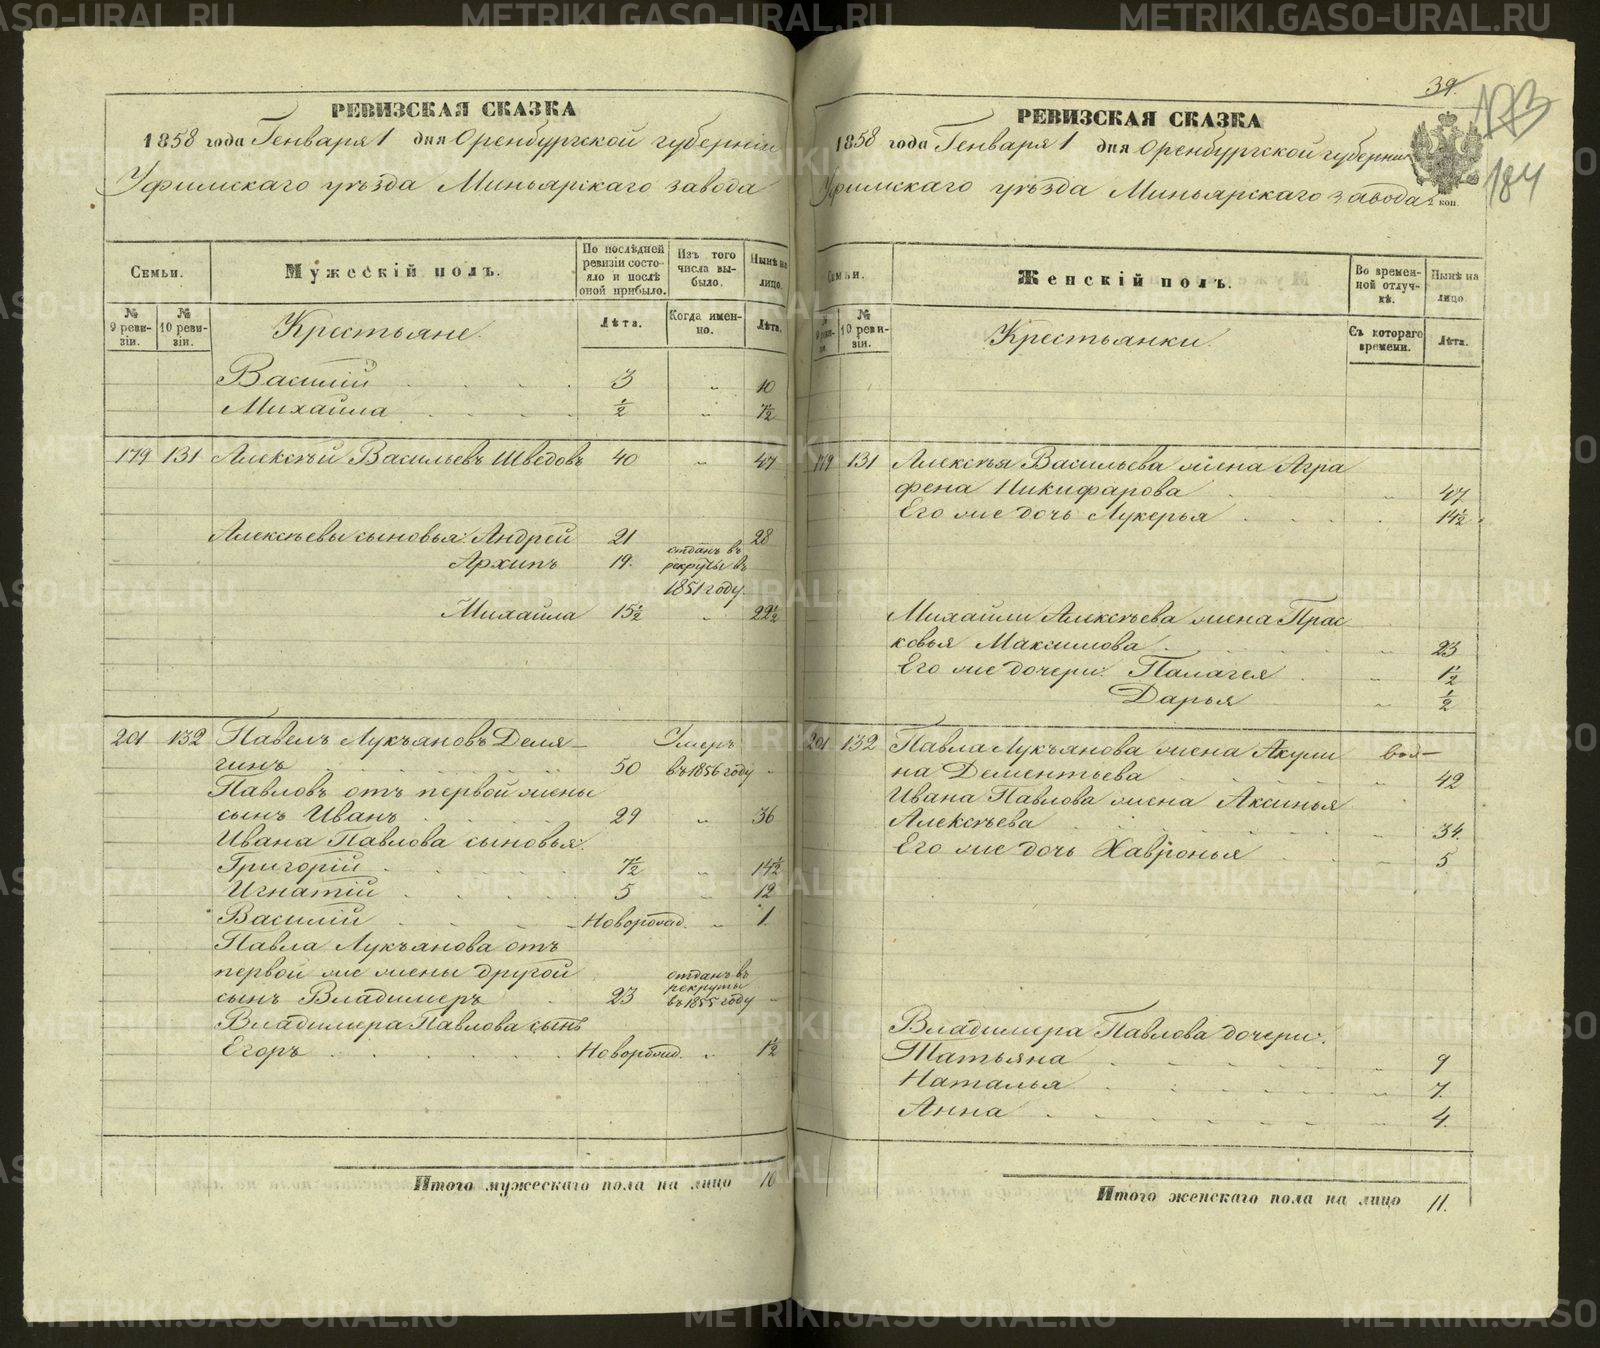 РЕВИЗСКАЯ СКАЗКА
1858 года Генваря 1 дня Оренбургской губернии
Уфимскаго уѣзда Миньярскаго завода
Семьи. Мужескій полъ. По послѣдней ревизіи состояло и послѣ оной прибыло. Изъ того числа выбыло. Нынѣ на лицо.
№ 9 ревизіи. № 10 ревизіи. Крестьяне. Лѣта. Когда именно. Лѣта.
Василій 3 „ 10
Михайла ½ „ 7½
179 131 Алексѣй Васильевъ Шведовъ 40 „ 47
Алексѣевы сыновья: Андрей 21 28
Архипъ 19. отданъ въ рекруты въ 1851 году.
Михайла 15½ „ 22½
201 132 Павелъ Лукъяновъ Деля- Умеръ
гинъ 50 въ 1856 году „
Павловъ отъ первой жены
сынъ Иванъ 29 „ 36
Ивана Павлова сыновья:
Григорій 7½ „ 14½
Игнатій 5 „ 12
Василій Новорожд. „ 1.
Павла Лукъянова отъ
первой же жены другой
сынъ Владимеръ 23 отданъ въ рекруты въ 1855 году „
Владимера Павлова сынъ
Егоръ Новорожд. „ 1½
Итого мужескаго пола на лицо 10
39.
173
184
РЕВИЗСКАЯ СКАЗКА
1858 года Генваря 1 дня Оренбургской губернии
Уфимскаго уѣзда Миньярскаго завода
2 коп.
Семьи. Женскій полъ. Во временной отлучкѣ. Нынѣ на лицо
№ 9 ревизіи. № 10 ревизіи. Крестьянки. Съ котораго времени. Лѣта.
179 131 Алексѣя Васильева жена Агра
фена Никифарова „ 47
Его же дочь Лукерья „ 14½
Михайли Алексѣева жена Прас
ковья Максимова „ 23
Его же дочери: Палагея „ 1½
Дарья „ ½
201 132 Павла Лукъянова жена Акули
на Дементьева „ 42
Ивана Павлова жена Аксинья
Алексѣева „ 34.
Его же дочь Хавронья „ 5
Владимера Павлова дочери:
Татьяна „ 9
Наталья „ 7.
Анна „ 4.
Итого женскаго пола на лицо 11.
METRIKI.GASO-URAL.RU